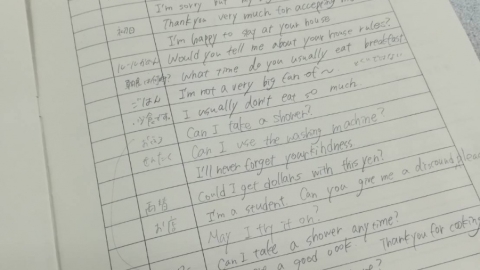 I'm sorry but my
Thank you very much for accepting
初日 I'm happy to stay at your house
Would you tell me about your house rules?
What time do you usually eat breakfast
ごはん I'm not a very big fan of ~
I usually don't eat so much.
Can I take a shower?
Can I use the washing machine?
I'll never forget your kindness
両替 Could I get dollars with this yen?
お店 I'm a student. Can you give me a discount, please
May I try it on?
Can I take a shower any time?
a good cook Thank you for cooking